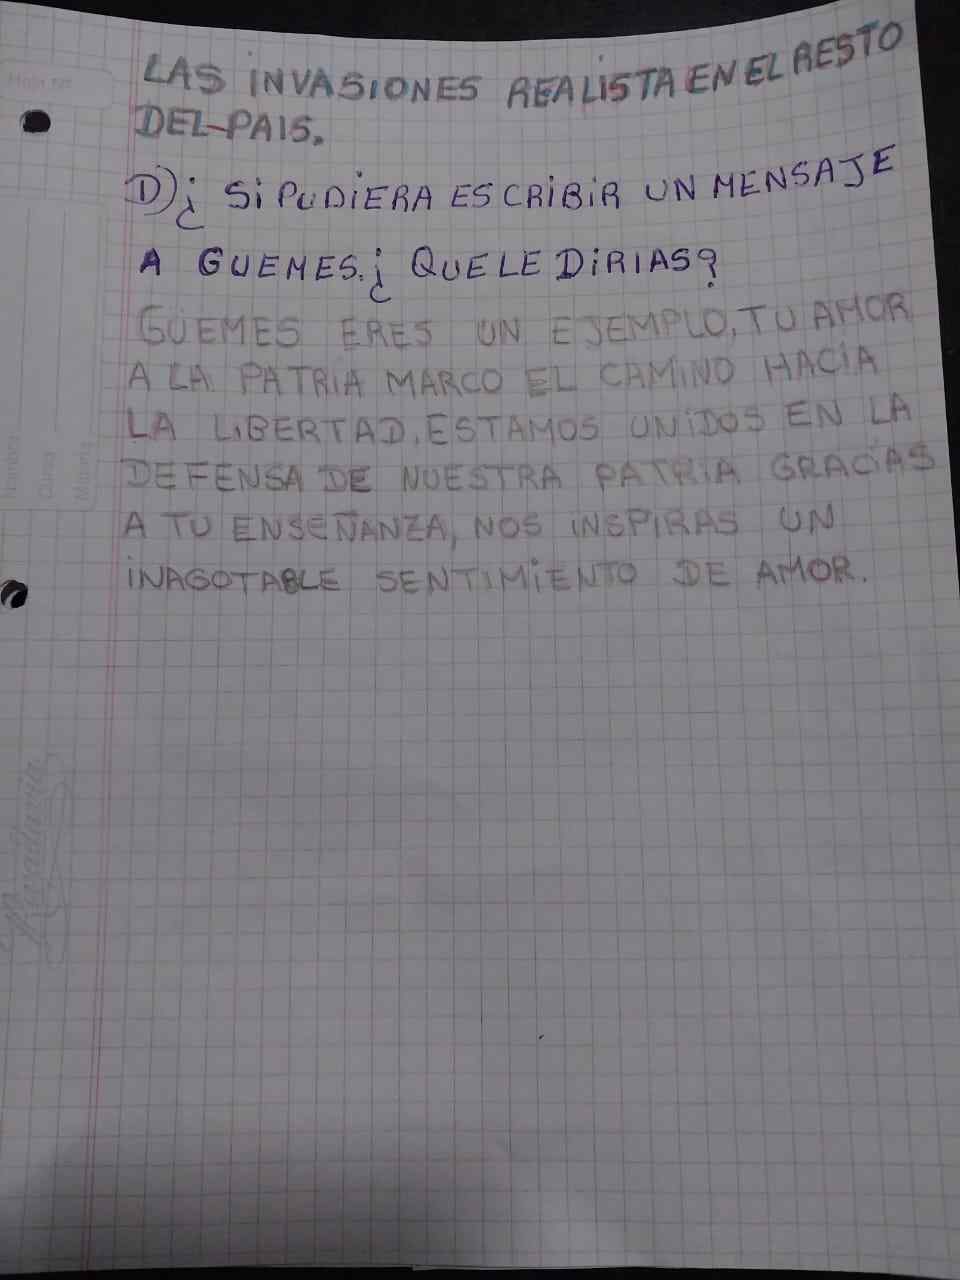 LAS INVASIONES REALISTA EN EL RESTO
DEL PAIS.
D) ¿ SI PUDIERA ESCRIBIR UN MENSAJE
A GUEMES. ¿ QUE LE DIRIAS?
GÜEMES ERES UN EJEMPLO, TU AMOR
A LA PATRIA MARCO EL CAMINO HACIA
LA LIBERTAD. ESTAMOS UNIDOS EN LA
DEFENSA DE NUESTRA PATRIA GRACIAS
A TU ENSEÑANZA, NOS INSPIRAS UN
INAGOTABLE SENTIMIENTO DE AMOR.
Hoja Nº
Nombre
Curso
Materia
Rivadavia